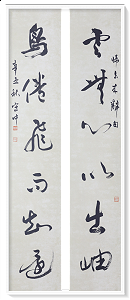 雲無心以出岫
鳥倦飛而知還